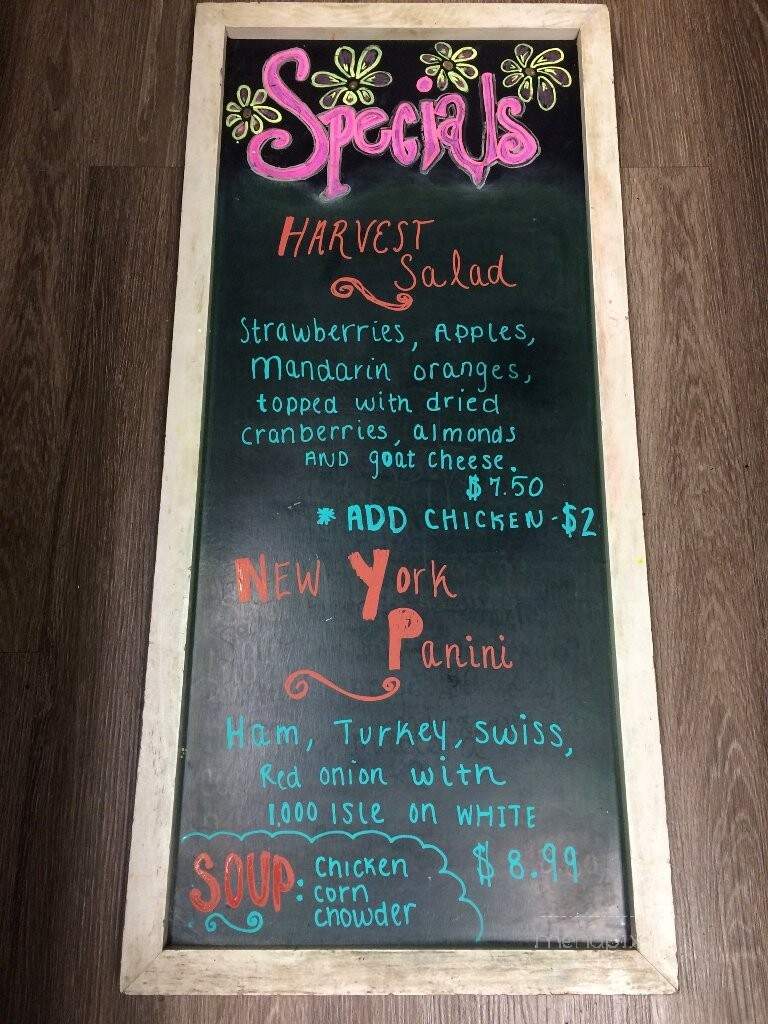 Specials
HARVEST
Salad
Strawberries, Apples,
Mandarin oranges,
topped with dried
cranberries, almonds
AND goat cheese.
$7.50
* ADD CHICKEN - $2
NEW York
Panini
Ham, Turkey, swiss,
Red onion with
1,000 ISLE on WHITE
$8.99
SOUP: Chicken
corn
chowder